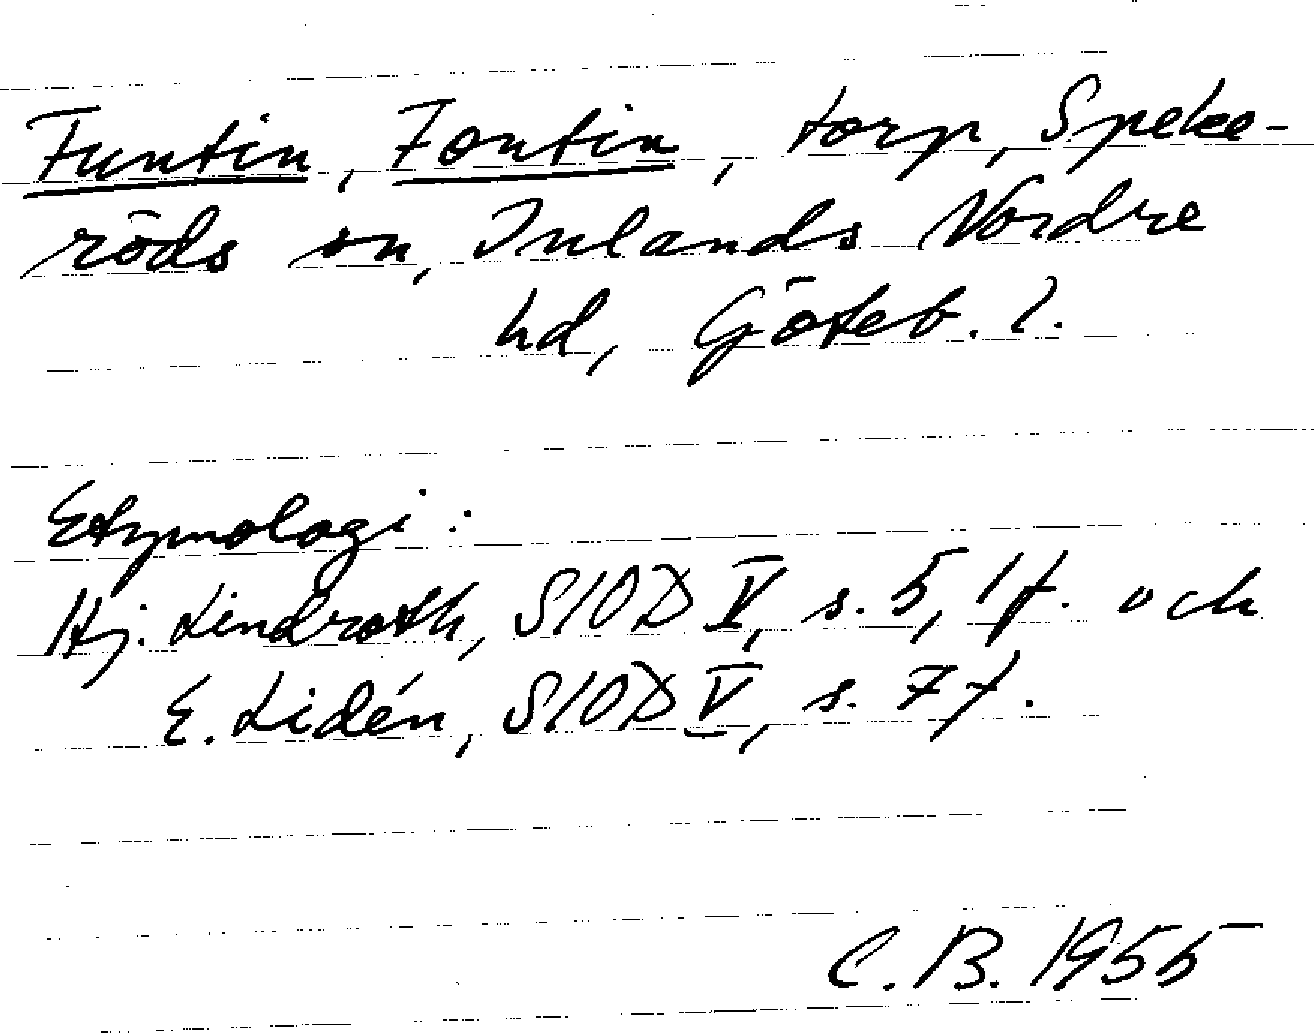 Funtin, Fontin, torp, Speke-
röds sn, Inlands Nordre
hd, Göteb. l.
Etymologi:
Hj. Lindroth, SIOD V, s. 5, 17. och
E. Lidén, SIOD V, s. 77.
C.B. 1955